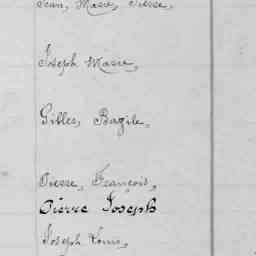 Jean, Marie, Pierre,
Joseph Marie,
Gilles, Bazile,
Pierre, François,
Pierre Joseph
Joseph Louis,